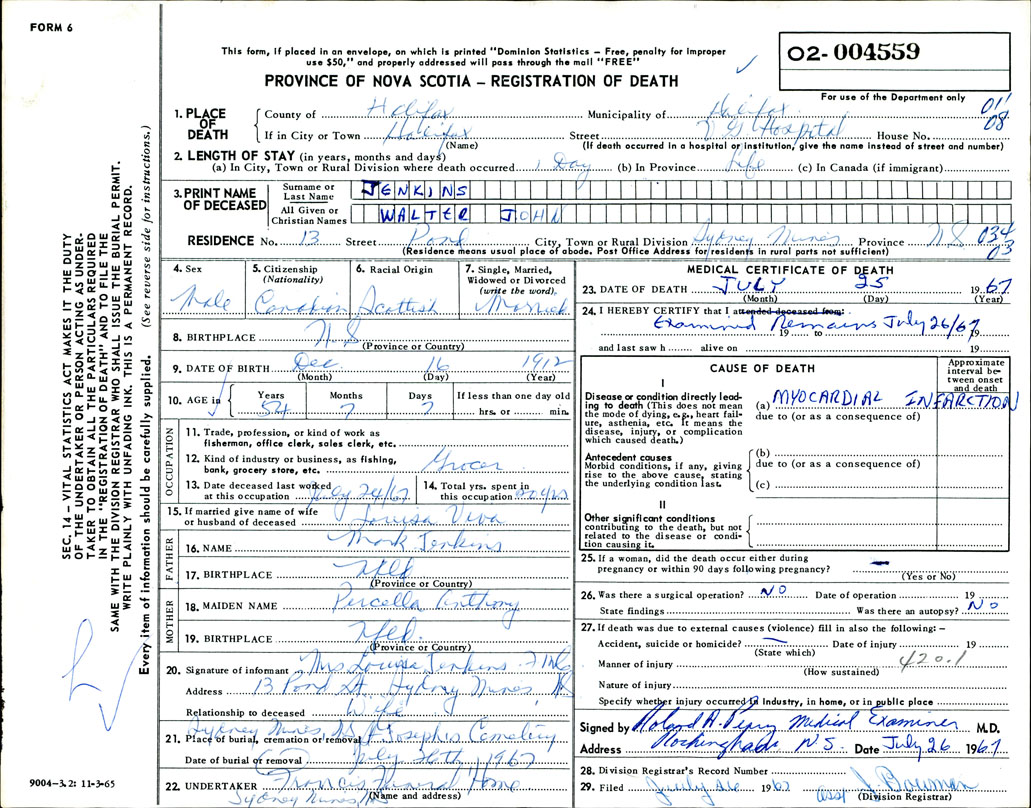 FORM 6
This form, if placed in an envelope, on which is printed "Dominion Statistics – Free, penalty for improper
use $50," and properly addressed will pass through the mail "FREE"
O2-004559
PROVINCE OF NOVA SCOTIA – REGISTRATION OF DEATH
For use of the Department only
1. PLACE OF DEATH County of Halifax Municipality of Halifax 01
If in City or Town Halifax Street V G Hospital House No. 08
(Name) (If death occurred in a hospital or institution, give the name instead of street and number)
2. LENGTH OF STAY (in years, months and days)
(a) In City, Town or Rural Division where death occurred 1 Day (b) In Province Life (c) In Canada (if immigrant)
3. PRINT NAME OF DECEASED Surname or Last Name JENKINS
All Given or Christian Names WALTER JOHN
RESIDENCE No. 13 Street Pond City, Town or Rural Division Sydney Mines Province N S 034
(Residence means usual place of abode. Post Office Address for residents in rural parts not sufficient) 03
4. Sex Male
5. Citizenship (Nationality) Canadian
6. Racial Origin Scottish
7. Single, Married, Widowed or Divorced (write the word) Married
8. BIRTHPLACE N S
(Province or Country)
9. DATE OF BIRTH Dec 16 1912
(Month) (Day) (Year)
10. AGE in Years 54 Months 7 Days 7 If less than one day old hrs. or min.
OCCUPATION
11. Trade, profession, or kind of work as
fisherman, office clerk, sales clerk, etc.
12. Kind of industry or business, as fishing,
bank, grocery store, etc. Grocer
13. Date deceased last worked
at this occupation July 24/67
14. Total yrs. spent in
this occupation
15. If married give name of wife
or husband of deceased Louisa Viva
FATHER
16. NAME Mark Jenkins
17. BIRTHPLACE Nfld
(Province or Country)
MOTHER
18. MAIDEN NAME Percella Anthony
19. BIRTHPLACE Nfld.
(Province or Country)
20. Signature of informant Mrs Louisa Jenkins
Address 13 Pond St. Sydney Mines NS
Relationship to deceased Wife
Sydney Mines, NS St Josephs Cemetery
21. Place of burial, cremation or removal
Date of burial or removal July 28th, 1967
22. UNDERTAKER Francis Funeral Home
(Name and address)
Sydney Mines, NS
MEDICAL CERTIFICATE OF DEATH
23. DATE OF DEATH JULY 25 1967
(Month) (Day) (Year)
24. I HEREBY CERTIFY that I attended deceased from:
Examined Remains July 26/67
19 to 19
and last saw h alive on 19
CAUSE OF DEATH
Approximate interval between onset and death
I
Disease or condition directly leading to death (This does not mean the mode of dying, e.g., heart failure, asthenia, etc. It means the disease, injury, or complication which caused death.)
(a) MYOCARDIAL INFARCTION
due to (or as a consequence of)
Antecedent causes
Morbid conditions, if any, giving rise to the above cause, stating the underlying condition last.
(b)
due to (or as a consequence of)
(c)
II
Other significant conditions
contributing to the death, but not related to the disease or condition causing it.
25. If a woman, did the death occur either during
pregnancy or within 90 days following pregnancy? –
(Yes or No)
26. Was there a surgical operation? NO Date of operation 19
State findings Was there an autopsy? NO
27. If death was due to external causes (violence) fill in also the following: –
Accident, suicide or homicide? – Date of injury 19
(State which)
Manner of injury 420.1
(How sustained)
Nature of injury
Specify whether injury occurred in industry, in home, or in public place
Signed by Roland A. Perry Medical Examiner M.D.
Address Rockingham N S. Date July 26 1967
28. Division Registrar's Record Number
29. Filed July 26 1967 asst J. Bowman
(Division Registrar)
SEC. 14 – VITAL STATISTICS ACT MAKES IT THE DUTY
OF THE UNDERTAKER OR PERSON ACTING AS UNDER-
TAKER TO OBTAIN ALL THE PARTICULARS REQUIRED
IN THE "REGISTRATION OF DEATH" AND TO FILE THE
SAME WITH THE DIVISION REGISTRAR WHO SHALL ISSUE THE BURIAL PERMIT.
WRITE PLAINLY WITH UNFADING INK. THIS IS A PERMANENT RECORD.
Every item of information should be carefully supplied. (See reverse side for instructions.)
9004–3.2: 11-3-65